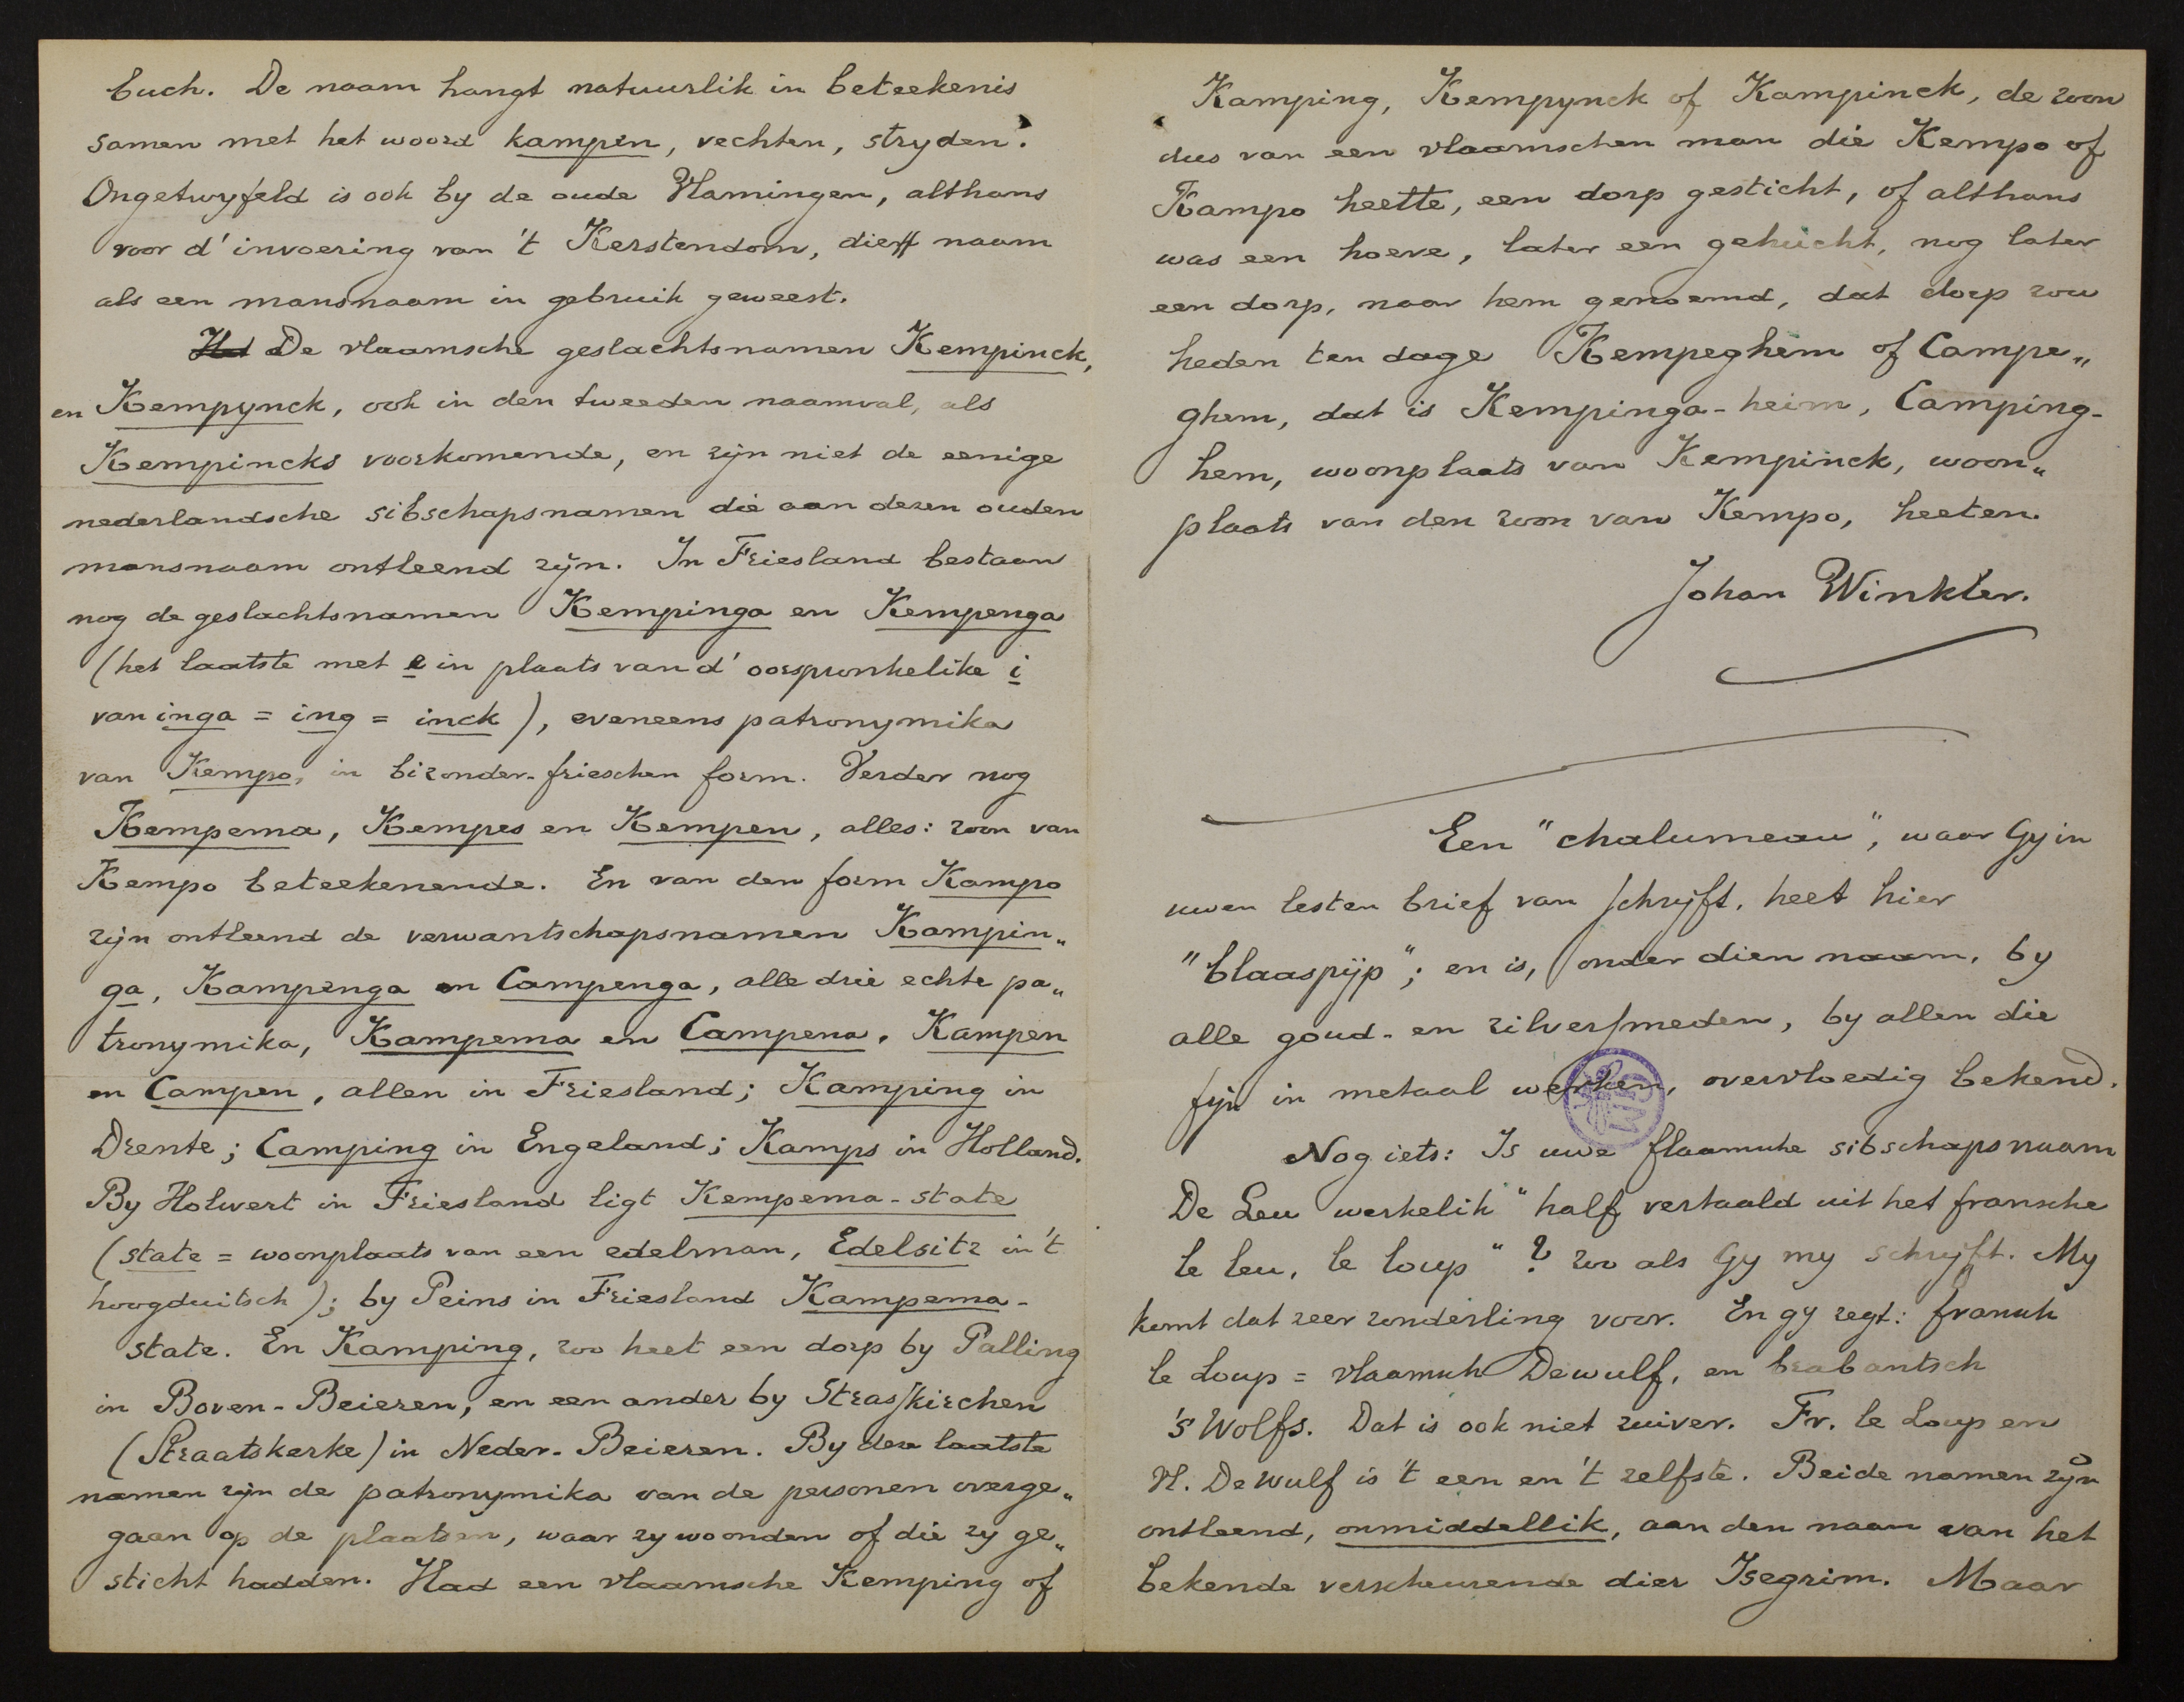 buch. De naam hangt natuurlik in beteekenis
samen met het woord kampen, vechten, stryden.
Ongetwyfeld is ook by de oude Vlamingen, althans
voor d'invoering van 't Kerstendom, die naam
als een mansnaam in gebruik geweest.
Het De vlaamsche geslachtsnamen Kempinck,
en Kempynck, ook in den tweeden naamval, als
Kempincks voorkomende, en zijn niet de eenige
nederlandsche sibschapsnamen die aan dezen ouden
mansnaam ontleend zijn. In Friesland bestaan
nog de geslachtsnamen Kempinga en Kempenga
(het laatste met e in plaats van d'oorspronkelike i
van inga = ing = inck), eveneens patronymika
van Kempo, in bizonder-frieschen form. Verder nog
Kempema, Kempes en Kempen, alles: zoon van
Kempo beteekenende. En van den form Kampo
zijn ontleend de verwantschapsnamen Kampin„
ga, Kampenga en Campenga, alle drie echte pa„
tronymika, Kampema en Campena, Kampen
en Campen, allen in Friesland; Kamping in
Drente; Camping in Engeland; Kamps in Holland.
By Holwert in Friesland ligt Kempema-state
(state = woonplaats van een edelman, Edelsitz in 't
hoogduitsch); by Peins in Friesland Kampema-
state. En Kamping, zoo heet een dorp by Palling
in Boven-Beieren, en een ander by Strasskirchen
(Straatskerke) in Neder-Beieren. By deze laatste
namen zijn de patronymika van de personen overge„
gaan op de plaatsen, waar zy woonden of die zy ge„
sticht hadden. Had een vlaamsche Kemping of
Kamping, Kempynck of Kampinck, de zoon
dus van een vlaamschen man die Kempo of
Kampo heette, een dorp gesticht, of althans
was een hoeve, later een gehucht, nog later
een dorp, naar hem genoemd, dat dorp zou
heden ten dage Kempeghem of Campe„
ghem, dat is Kempinga-heim, Camping-
hem, woonplaats van Kempinck, woon„
plaats van den zoon van Kempo, heeten.
Johan Winkler.
Een "chalumeau", waar Gy in
uwen lesten brief van schrijft, heet hier
"blaaspijp"; en is, onder dien naam, by
alle goud- en zilversmeden, by allen die
fijn in metaal werken, overvloedig bekend.
Nog iets: Is uwe flaamsche sibschapsnaam
De Leu werkelik "half vertaald uit het fransche
le leu, le loup"? zoo als Gy my schrijft. My
komt dat zeer zonderling voor. En gy zegt: fransch
le Loup = vlaamsch Dewulf, en brabantsch
's Wolfs. Dat is ook niet zuiver. Fr. le Loup en
Vl. De Wulf is 't een en 't zelfste. Beide namen zijn
ontleend, onmiddellik, aan den naam van het
bekende verscheurende dier Isegrim. Maar